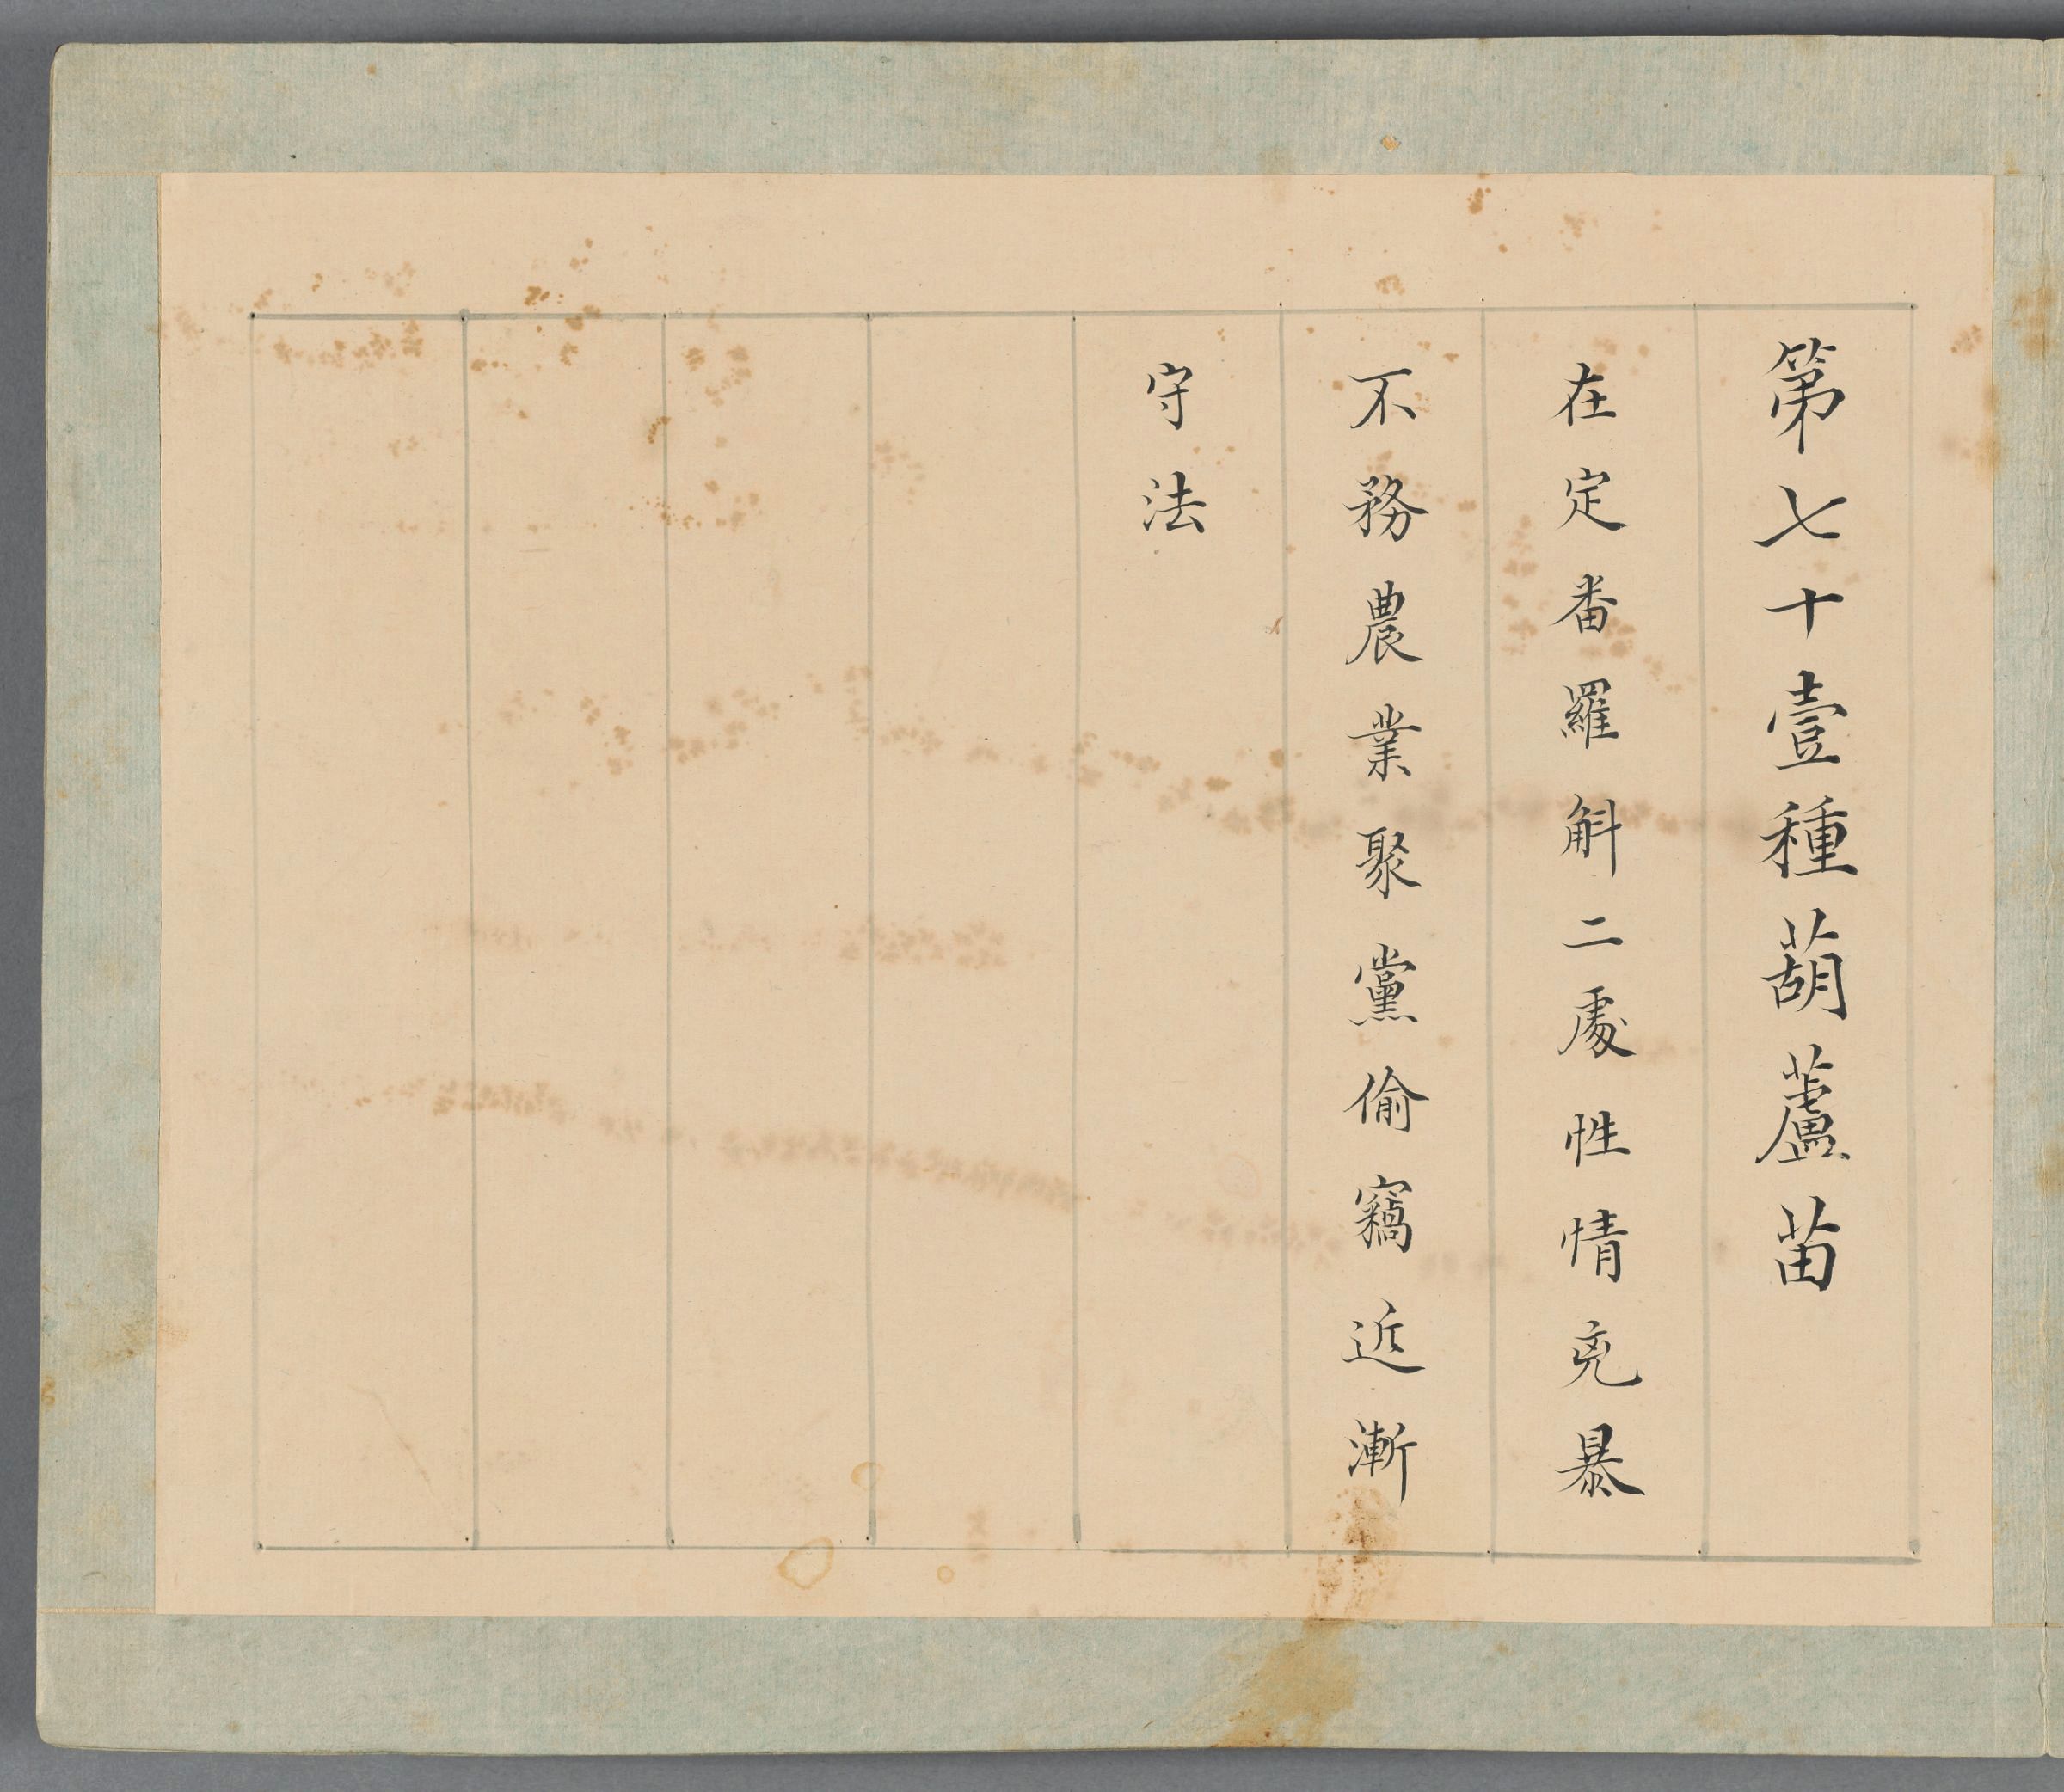 第七十壹種葫蘆苗
在定番羅斛二處性情兇暴
不務農業聚黨偷竊近漸
守法